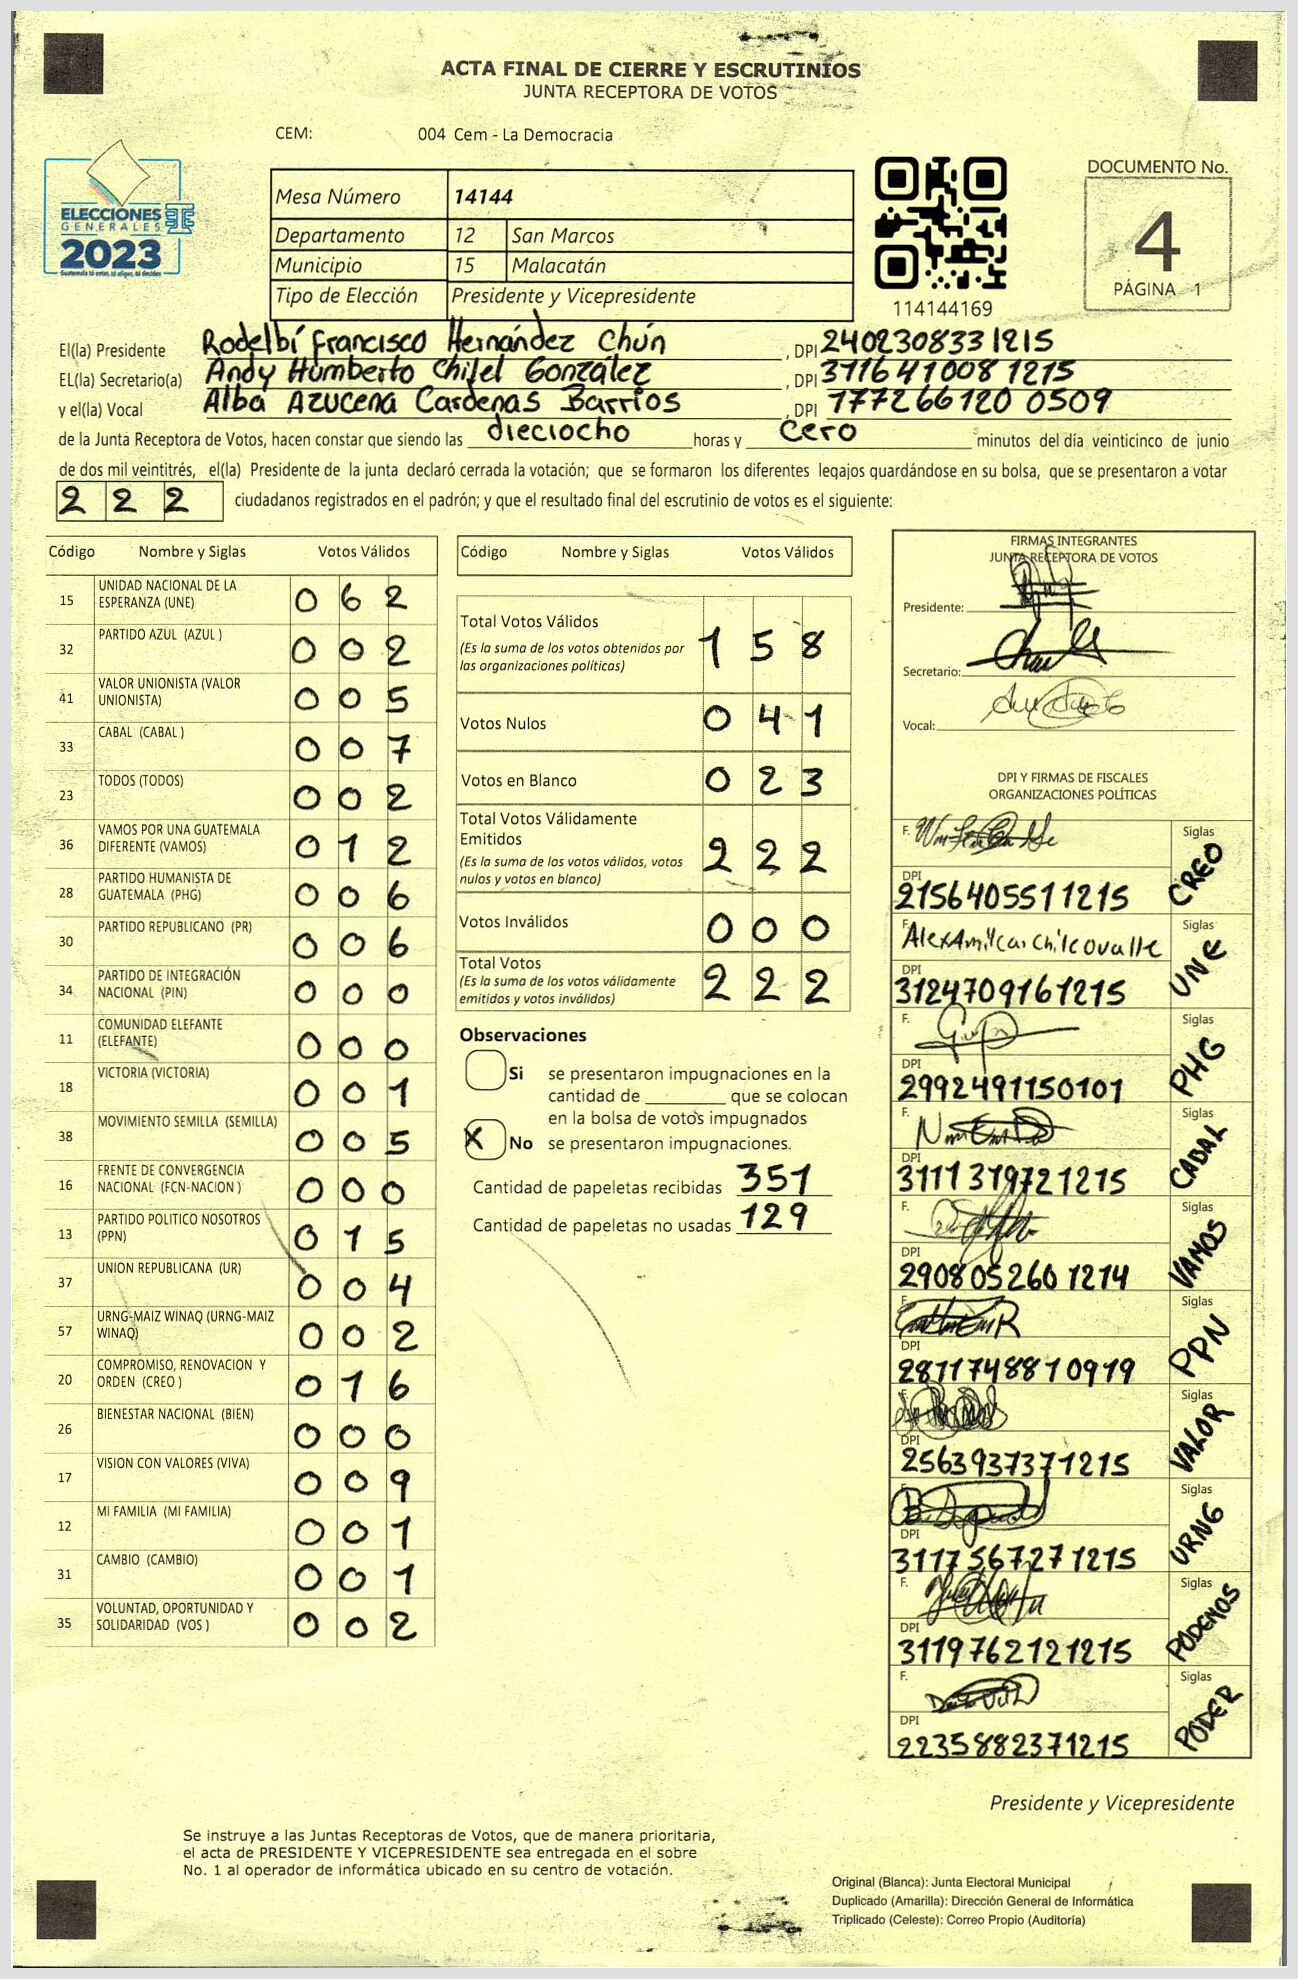 ACTA FINAL DE CIERRE Y ESCRUTINIOS
JUNTA RECEPTORA DE VOTOS
CEM: 004 Cem - La Democracia
ELECCIONES
GENERALES
2023
Guatemala tú votas, tú eliges, tú decides
Mesa Número 14144
Departamento 12 San Marcos
Municipio 15 Malacatán
Tipo de Elección Presidente y Vicepresidente
114144169
DOCUMENTO No.
4
PÁGINA 1
El(la) Presidente Rodelbí Francisco Hernández Chún , DPI 2402308331215
EL(la) Secretario(a) Andy Humberto Chilel González , DPI 3116410081215
y el(la) Vocal Alba Azucena Cardenas Barrios , DPI 1772661200509
de la Junta Receptora de Votos, hacen constar que siendo las dieciocho horas y cero minutos del día veinticinco de junio
de dos mil veintitrés, el(la) Presidente de la junta declaró cerrada la votación; que se formaron los diferentes legajos guardándose en su bolsa, que se presentaron a votar
222 ciudadanos registrados en el padrón; y que el resultado final del escrutinio de votos es el siguiente:
Código Nombre y Siglas Votos Válidos
15 UNIDAD NACIONAL DE LA ESPERANZA (UNE) 062
32 PARTIDO AZUL (AZUL ) 002
41 VALOR UNIONISTA (VALOR UNIONISTA) 005
33 CABAL (CABAL ) 007
23 TODOS (TODOS) 002
36 VAMOS POR UNA GUATEMALA DIFERENTE (VAMOS) 012
28 PARTIDO HUMANISTA DE GUATEMALA (PHG) 006
30 PARTIDO REPUBLICANO (PR) 006
34 PARTIDO DE INTEGRACIÓN NACIONAL (PIN) 000
11 COMUNIDAD ELEFANTE (ELEFANTE) 000
18 VICTORIA (VICTORIA) 001
38 MOVIMIENTO SEMILLA (SEMILLA) 005
16 FRENTE DE CONVERGENCIA NACIONAL (FCN-NACION ) 000
13 PARTIDO POLITICO NOSOTROS (PPN) 015
37 UNION REPUBLICANA (UR) 004
57 URNG-MAIZ WINAQ (URNG-MAIZ WINAQ) 002
20 COMPROMISO, RENOVACION Y ORDEN (CREO ) 016
26 BIENESTAR NACIONAL (BIEN) 000
17 VISION CON VALORES (VIVA) 009
12 MI FAMILIA (MI FAMILIA) 001
31 CAMBIO (CAMBIO) 001
35 VOLUNTAD, OPORTUNIDAD Y SOLIDARIDAD (VOS ) 002
Código Nombre y Siglas Votos Válidos
Total Votos Válidos 158
(Es la suma de los votos obtenidos por
las organizaciones políticas)
Votos Nulos 041
Votos en Blanco 023
Total Votos Válidamente
Emitidos 222
(Es la suma de los votos válidos, votos
nulos y votos en blanco)
Votos Inválidos 000
Total Votos 222
(Es la suma de los votos válidamente
emitidos y votos inválidos)
Observaciones
Si se presentaron impugnaciones en la
cantidad de ________ que se colocan
en la bolsa de votos impugnados
X No se presentaron impugnaciones.
Cantidad de papeletas recibidas 351
Cantidad de papeletas no usadas 129
FIRMAS INTEGRANTES
JUNTA RECEPTORA DE VOTOS
Presidente:
Secretario:
Vocal:
DPI Y FIRMAS DE FISCALES
ORGANIZACIONES POLÍTICAS
F. Siglas CREO
DPI 2156405511215
F. Alex Amilcar Chilcovalle Siglas UNE
DPI 3124709161215
F. Siglas PHG
DPI 2992491150101
F. Siglas CABAL
DPI 3111319721215
F. Siglas VAMOS
DPI 2908052601214
F. Siglas PPN
DPI 2871748810919
F. Siglas VALOR
DPI 2563937371215
F. Siglas URNG
DPI 3117567271215
F. Siglas PODEMOS
DPI 3119762121215
F. Siglas PODER
DPI 2235882371215
Presidente y Vicepresidente
Se instruye a las Juntas Receptoras de Votos, que de manera prioritaria,
el acta de PRESIDENTE Y VICEPRESIDENTE sea entregada en el sobre
No. 1 al operador de informática ubicado en su centro de votación.
Original (Blanca): Junta Electoral Municipal
Duplicado (Amarilla): Dirección General de Informática
Triplicado (Celeste): Correo Propio (Auditoría)